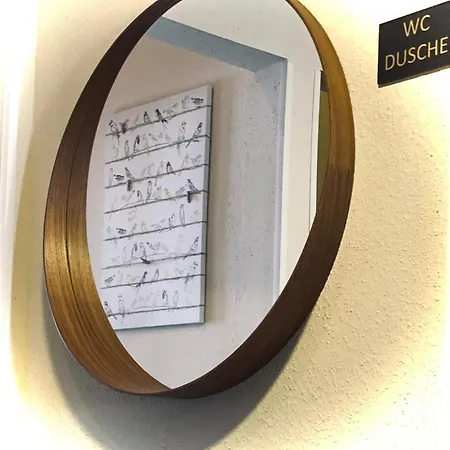 WC
DUSCHE